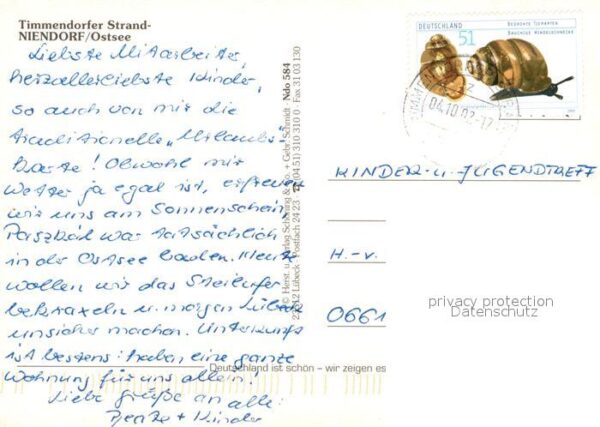 Timmendorfer Strand-
NIENDORF/Ostsee
Liebste Mitarbeiter,
herzallerliebste Kinder,
so auch von mir die
traditionelle "Urlaubs"-
Karte! Obwohl mir
Wetter ja egal ist, erfreuen
wir uns am Sonnenschein.
war tatsächlich
in der Ostsee baden. Heut
wollen wir das Steilufer
bekraxeln u. morgen Lübeck
unsicher machen. Unterkunft
ist bestens: haben eine ganze
Wohnung für uns allein!
Liebe Grüße an alle:
+ Kinder
Ndo 584
Herst. u. Verlag Schöning & Co. + Gebr. Schmidt
Lübeck · Postfach 24 23 · (04 51) 310 310 0 · Fax 31 03 130
Deutschland ist schön – wir zeigen es
DEUTSCHLAND
51
BEDROHTE TIERARTEN
BAUCHIGE WINDELSCHNECKE
04.10.02-17
KINDER- u. JUGENDTREFF
H.-v.
0661
privacy protection
Datenschutz